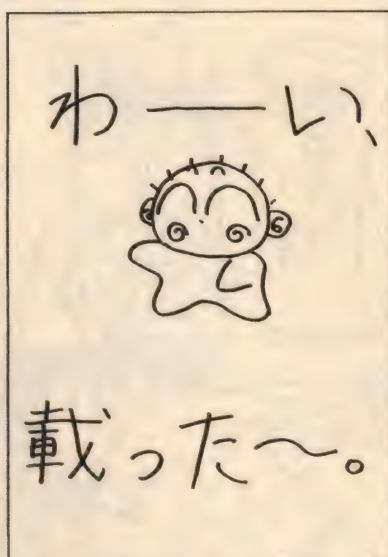 わーい、
載った〜。